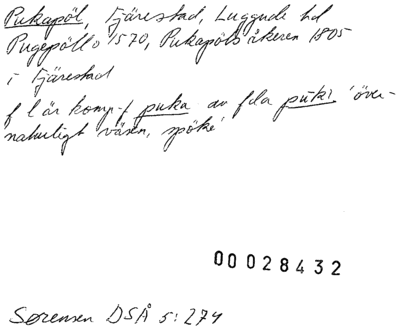 Pukapöl, Fjärestad, Luggude hd
Pugepöllo 1570, Pukapöls åkeren 1805
i Fjärestad
f l är komp-f puka av fda puki 'över-
naturligt väsen, spöke'
00028432
Sørensen DSÅ 5:274